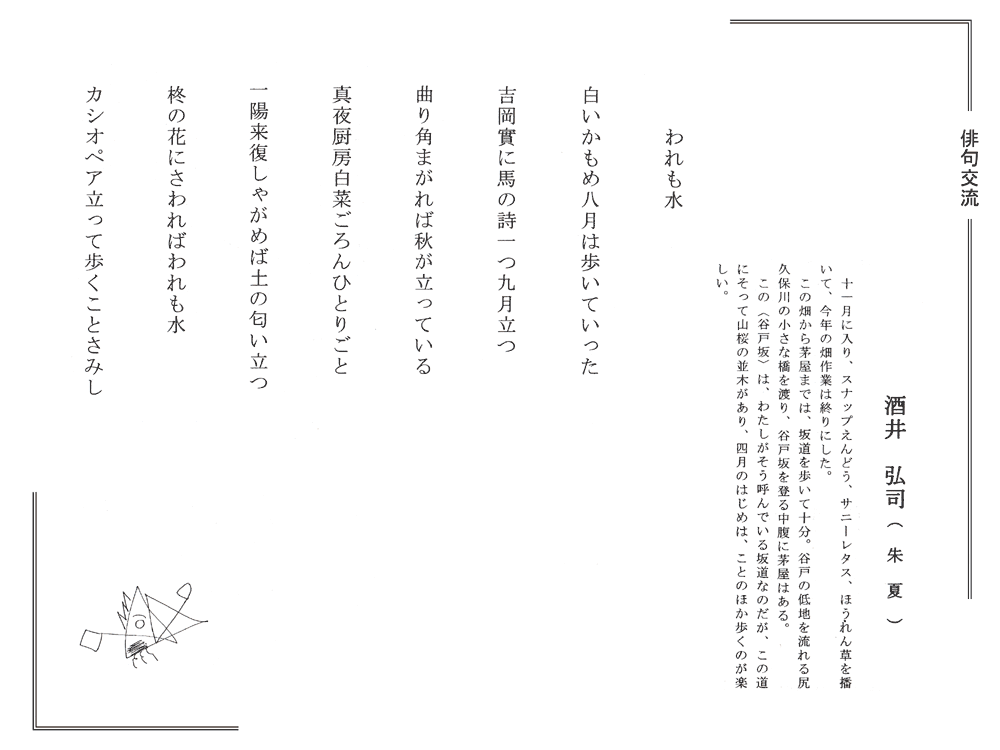 俳句交流
酒井　弘司（朱夏）
十一月に入り、スナップえんどう、サニーレタス、ほうれん草を播
いて、今年の畑作業は終りにした。
この畑から茅屋までは、坂道を歩いて十分。谷戸の低地を流れる尻
久保川の小さな橋を渡り、谷戸坂を登る中腹に茅屋はある。
この（谷戸坂）は、わたしがそう呼んでいる坂道なのだが、この道
にそって山桜の並木があり、四月のはじめは、ことのほか歩くのが楽
しい。
われも水
白いかもめ八月は歩いていった
吉岡實に馬の詩一つ九月立つ
曲り角まがれば秋が立っている
真夜厨房白菜ごろんひとりごと
一陽来復しゃがめば土の匂い立つ
柊の花にさわればわれも水
カシオペア立って歩くことさみし